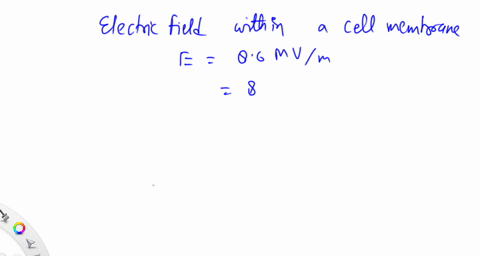 Electric field within a cell membrane
E = 8.0 MV/m
= 8